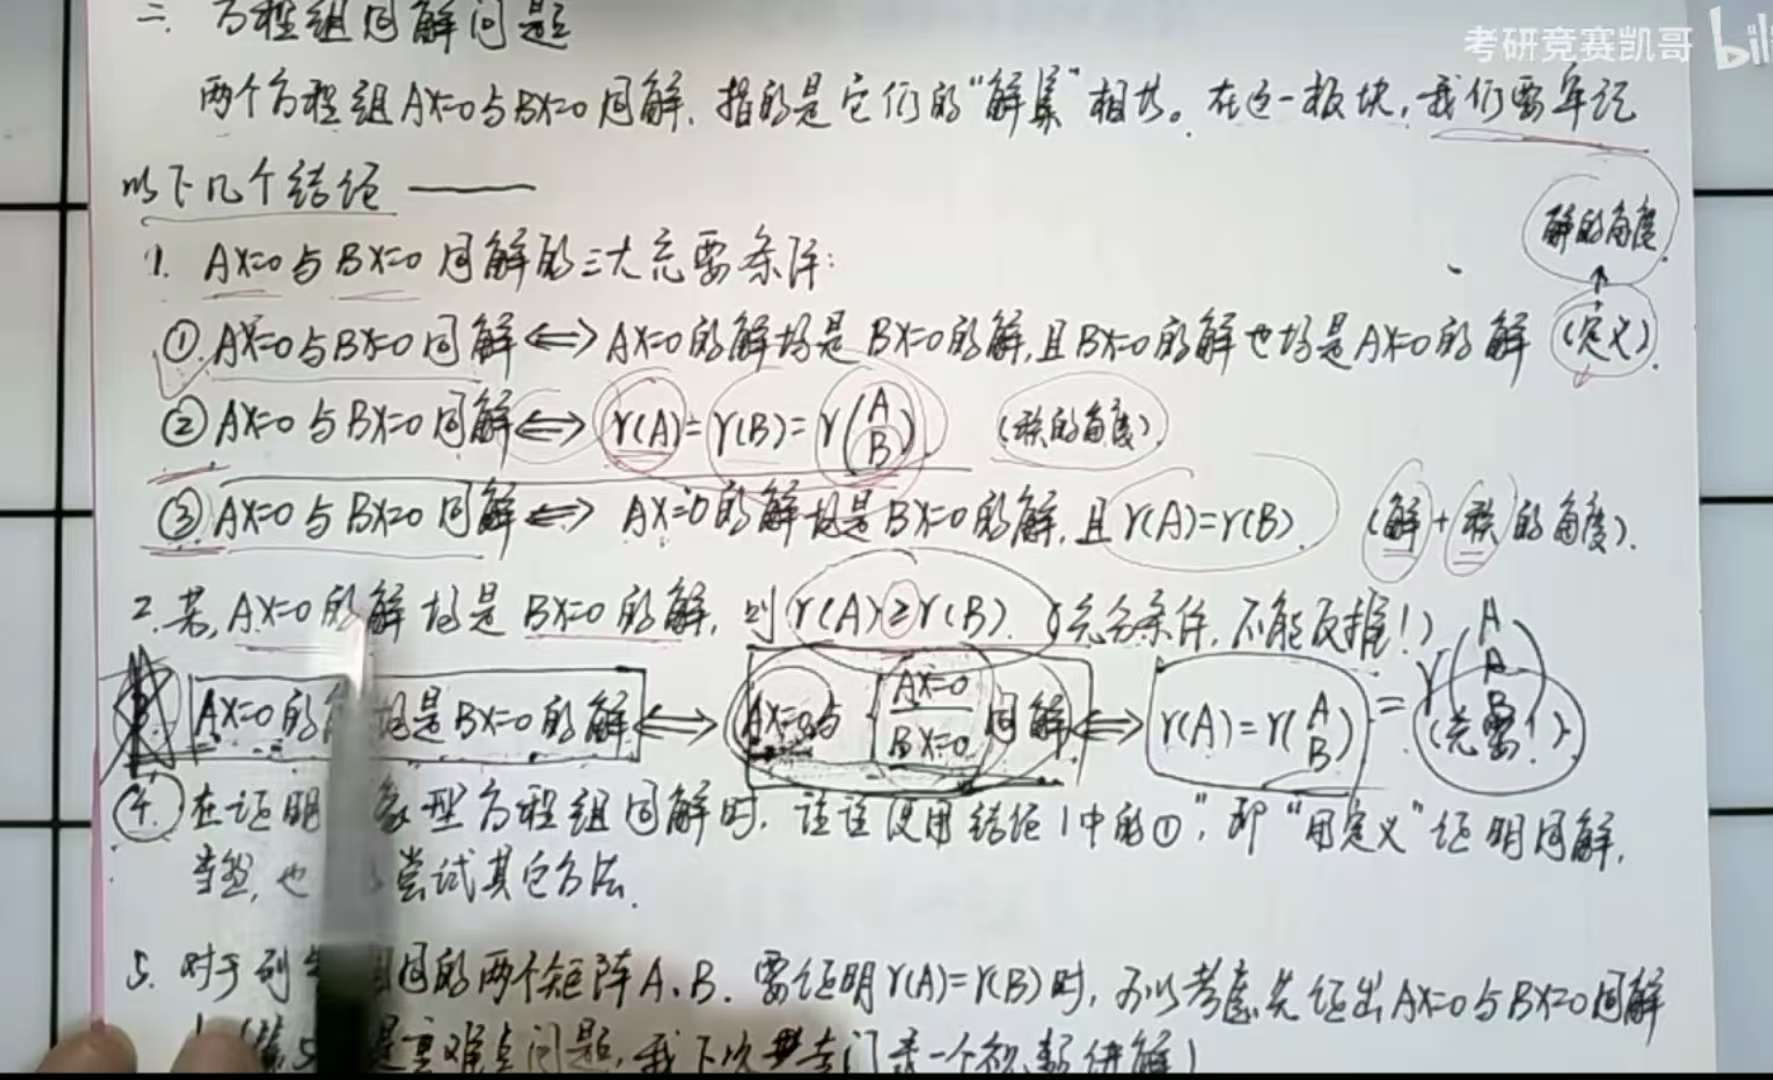 二. 方程组同解问题
考研竞赛凯哥 bili
两个方程组AX=0与BX=0同解, 指的是它们的“解集”相同。在这一板块, 我们要牢记
以下几个结论——
解的角度
1. AX=0与BX=0同解的三大充要条件:
①. AX=0与BX=0同解⟺AX=0的解均是BX=0的解,且BX=0的解也均是AX=0的解 (定义).
② AX=0与BX=0同解⟺r(A)=r(B)=r(A B). (秩的角度).
③ AX=0与BX=0同解⟺AX=0的解均是BX=0的解, 且r(A)=r(B). (解+秩的角度).
2. 若, AX=0的解均是BX=0的解, 则r(A)≥r(B). (充分条件, 不能反推!)
AX=0的 均是BX=0的解⟺AX=0与{AX=0 BX=0 同解⟺r(A)=r(A B) = r(A A B) (充要!).
4. 在证明 型方程组同解时, 应该使用结论1中的①”, 即“用定义”证明同解,
当然, 也 尝试其它方法.
5. 对于列 同的两个矩阵A、B. 要证明r(A)=r(B)时, 可以考虑先证出AX=0与BX=0同解
是重难点问题, 我下次 专门录一个视频讲解)